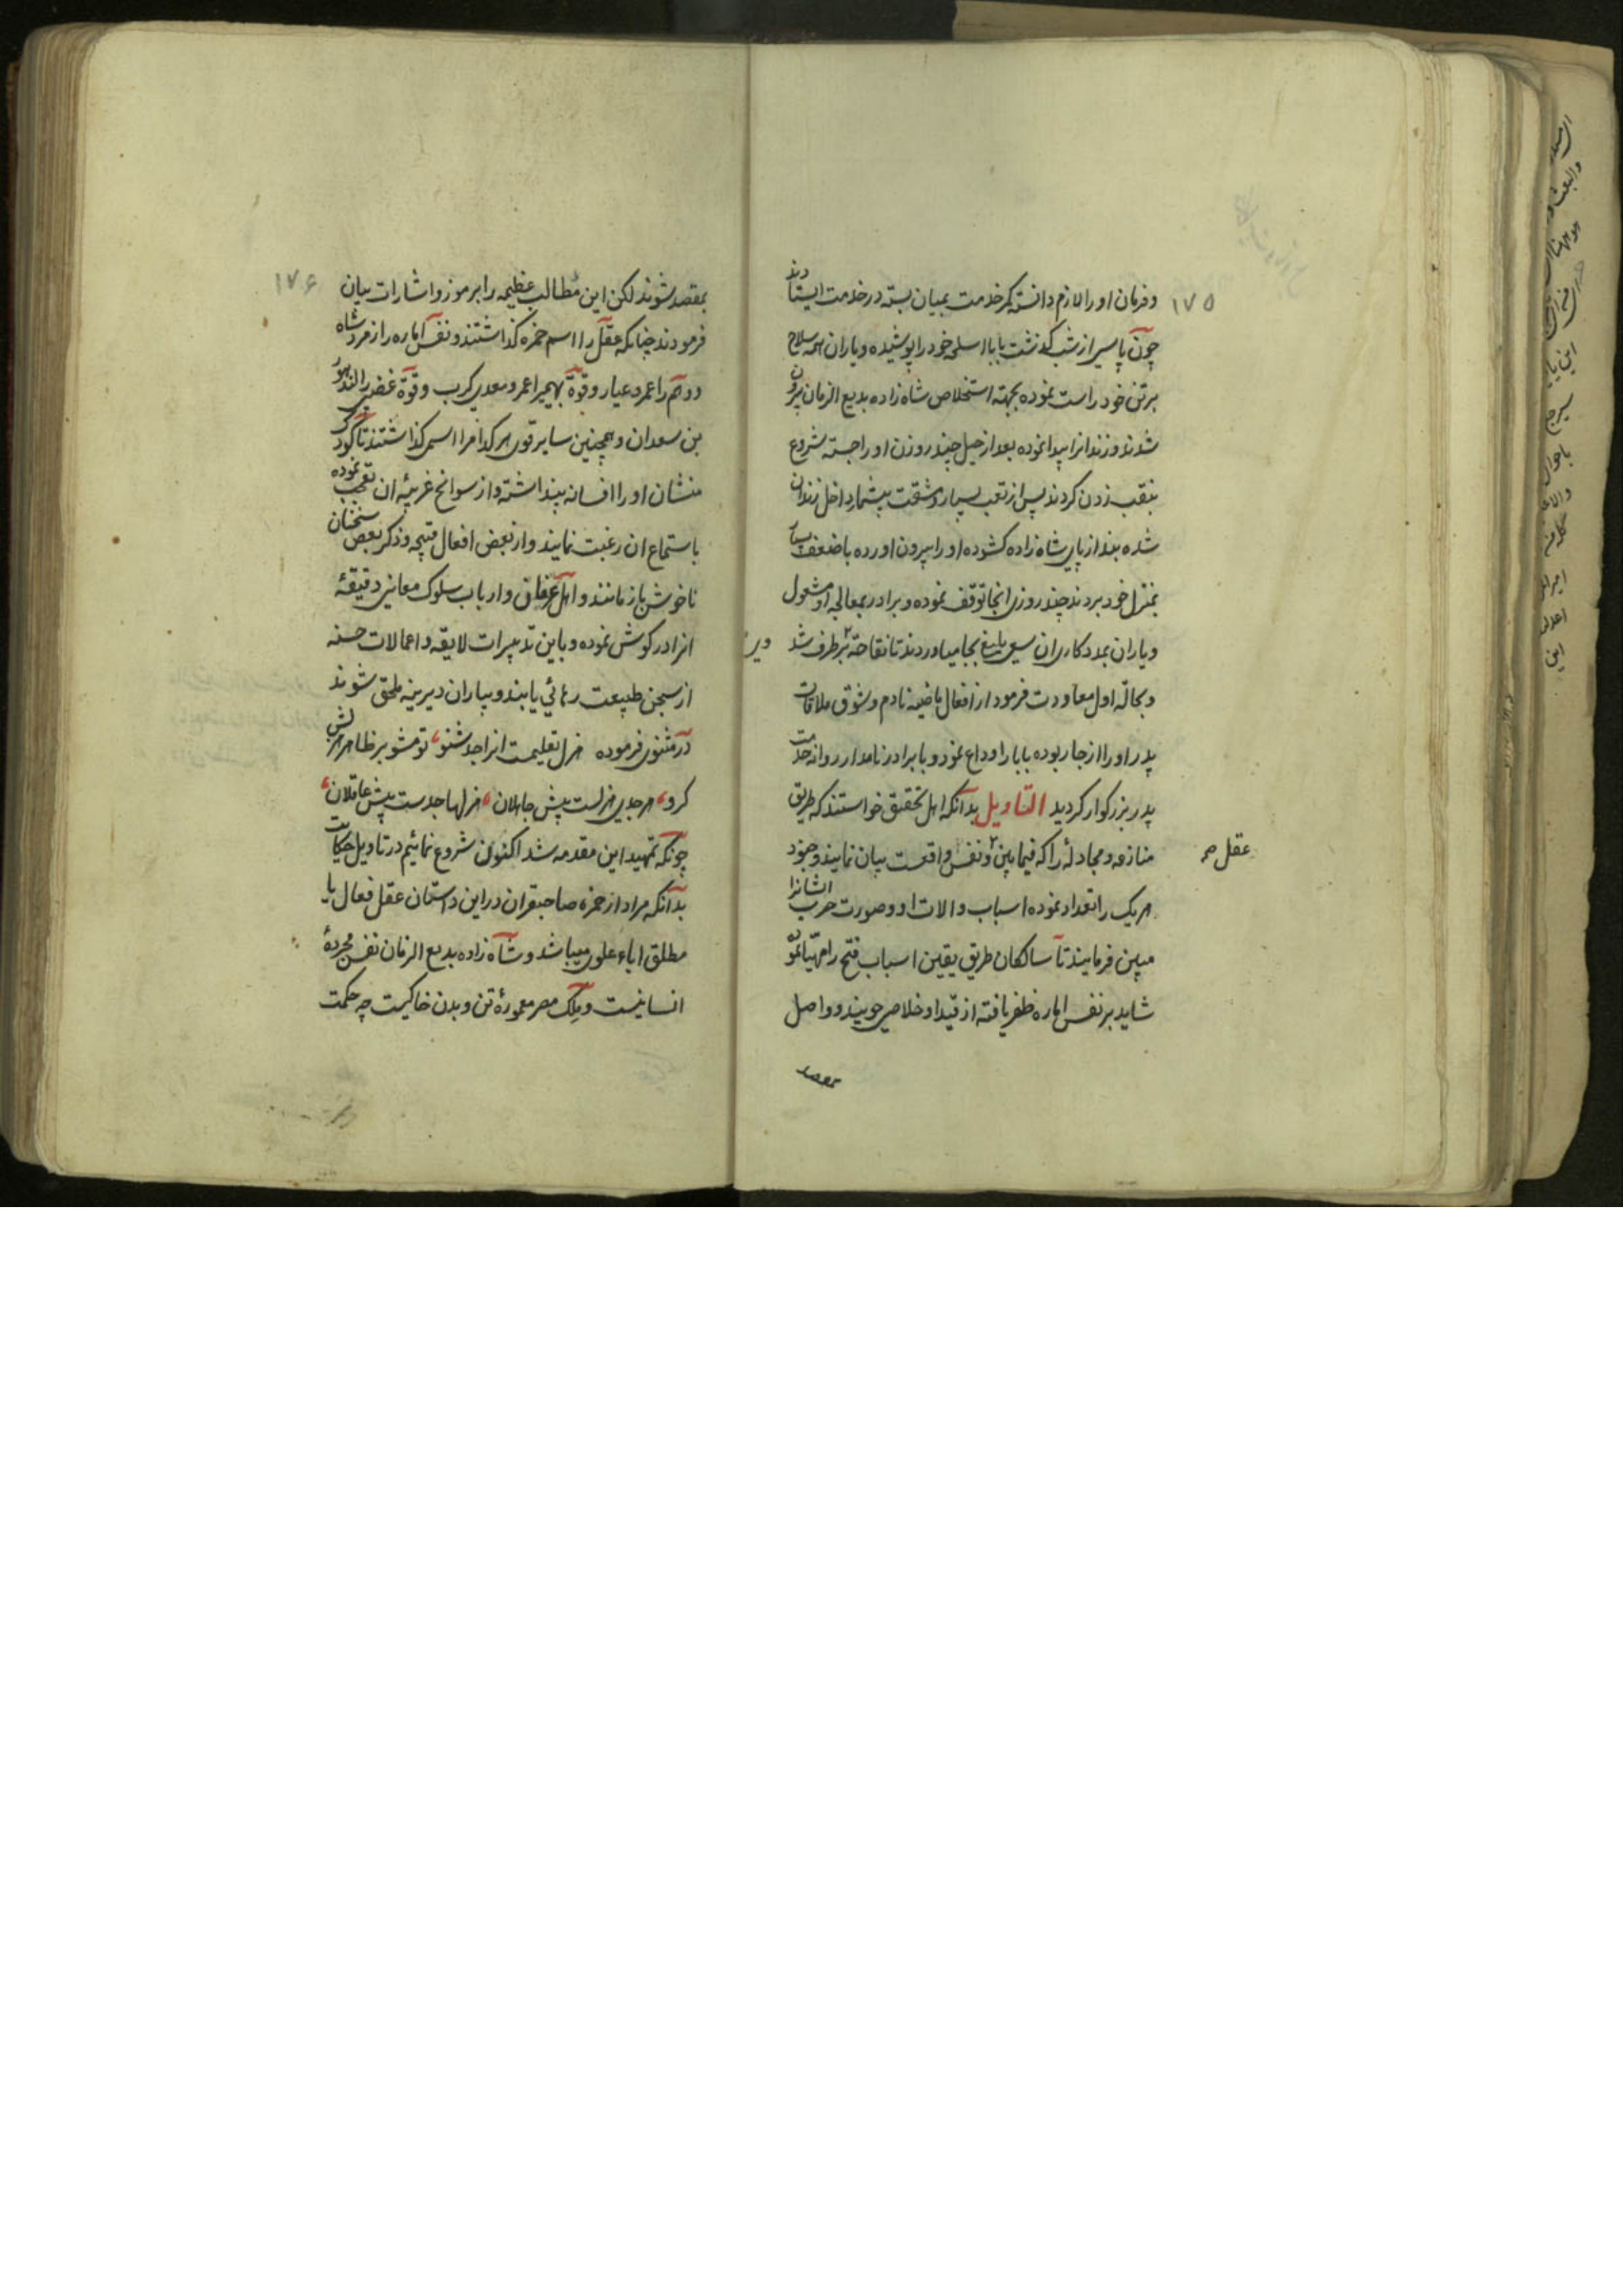 ۱۷۵
وفرمان او را لازم دانسته کمر خدمت بمیان بسته در خدمت ایستادند
چون پاسی از شب گذشت بابا اسلحه خود را پوشیده و یاران همه سلاح
برتن خود راست نموده بجهته استخلاص شاه زاده بدیع الزمان بیرون
شدند و زندانرا پیدا نموده بعد از حیل چند روزن او را جسته شروع
بنقب زدن کردند پس از تعب بسیار و مشقت بیشمار داخل زندان
شده بند از پای شاه زاده کشوده او را بیرون اورده با ضعف بسیار
بمنزل خود بردند چند روزی انجا توقف نموده و برادر بمعالجه او مشغول
و یاران بمددکاری ان سعی بلیغ بجا میاوردند تا نقاهة برطرف شد
و بحالة اول معاودت فرمود از افعال ماضیه نادم و شوق ملاقات
پدر او را از جا ربوده بابا را وداع نمود و با برادر نامدار روانه خدمت
پدر بزرگوار کردید التاویل بدانکه اهل تحقیق خواستند که طریق
منازعه و مجادلهٔ را که فیمابین و نفس واقعست بیان نمایند و جنود
عقل صح
هریک را تعداد نموده اسباب والات او و صورت حرب ایشانرا
مبین فرمایند تا سالکان طریق یقین اسباب فتح را مهیا نموده
شاید بر نفس اماره ظفر یافته از قید او خلاصی جویند و واصل
بمقصد
۱۷۶
بمقصد شوند لکن این مطالب عظیمه را برموز و اشارات بیان
فرمودند چنانکه عقل را اسم حمزه کذاشتند و نفس اماره را زمرد شاه
و وهم را عمرو عیار و قوة بهیمیرا عمرو معدی کرب و قوة غضبی را لندهور
بن سعدان و همچنین سایر قوی هر کدامرا اسمی کذاشتند تا کودک
منشان او را افسانه پنداشته و از سوانح غریبهٔ ان تعجب نموده
باستماع ان رغبت نمایند و از بعض افعال قبیحه و ذکر بعض سخنان
ناخوش بازمانند و اهل عرفان و ارباب سلوک معانی دقیقهٔ
انرا در کوش نموده و باین تدبیرات لایقه و اعمالات حسنه
از سجن طبیعت رهائی یابند و بیاران دیرینه ملحق شوند
در مثنوی فرموده هزل تعلیمست انرا جد شنو تو مشو بر ظاهر هزلش
کرو هر جدی هزلست پیش جاهلان هزلها جدست پیش عاقلان
چونکه تمهید این مقدمه شد اکنون شروع نمائیم در تاویل حکایت
بدانکه مراد از حمزه صاحبقران در این داستان عقل فعال یا
مطلق اباء علوی میباشد و شاه زاده بدیع الزمان نفس مجردهٔ
انسانیست و ملک مصر معمورهٔ تن و بدن خاکیست چه حکمت